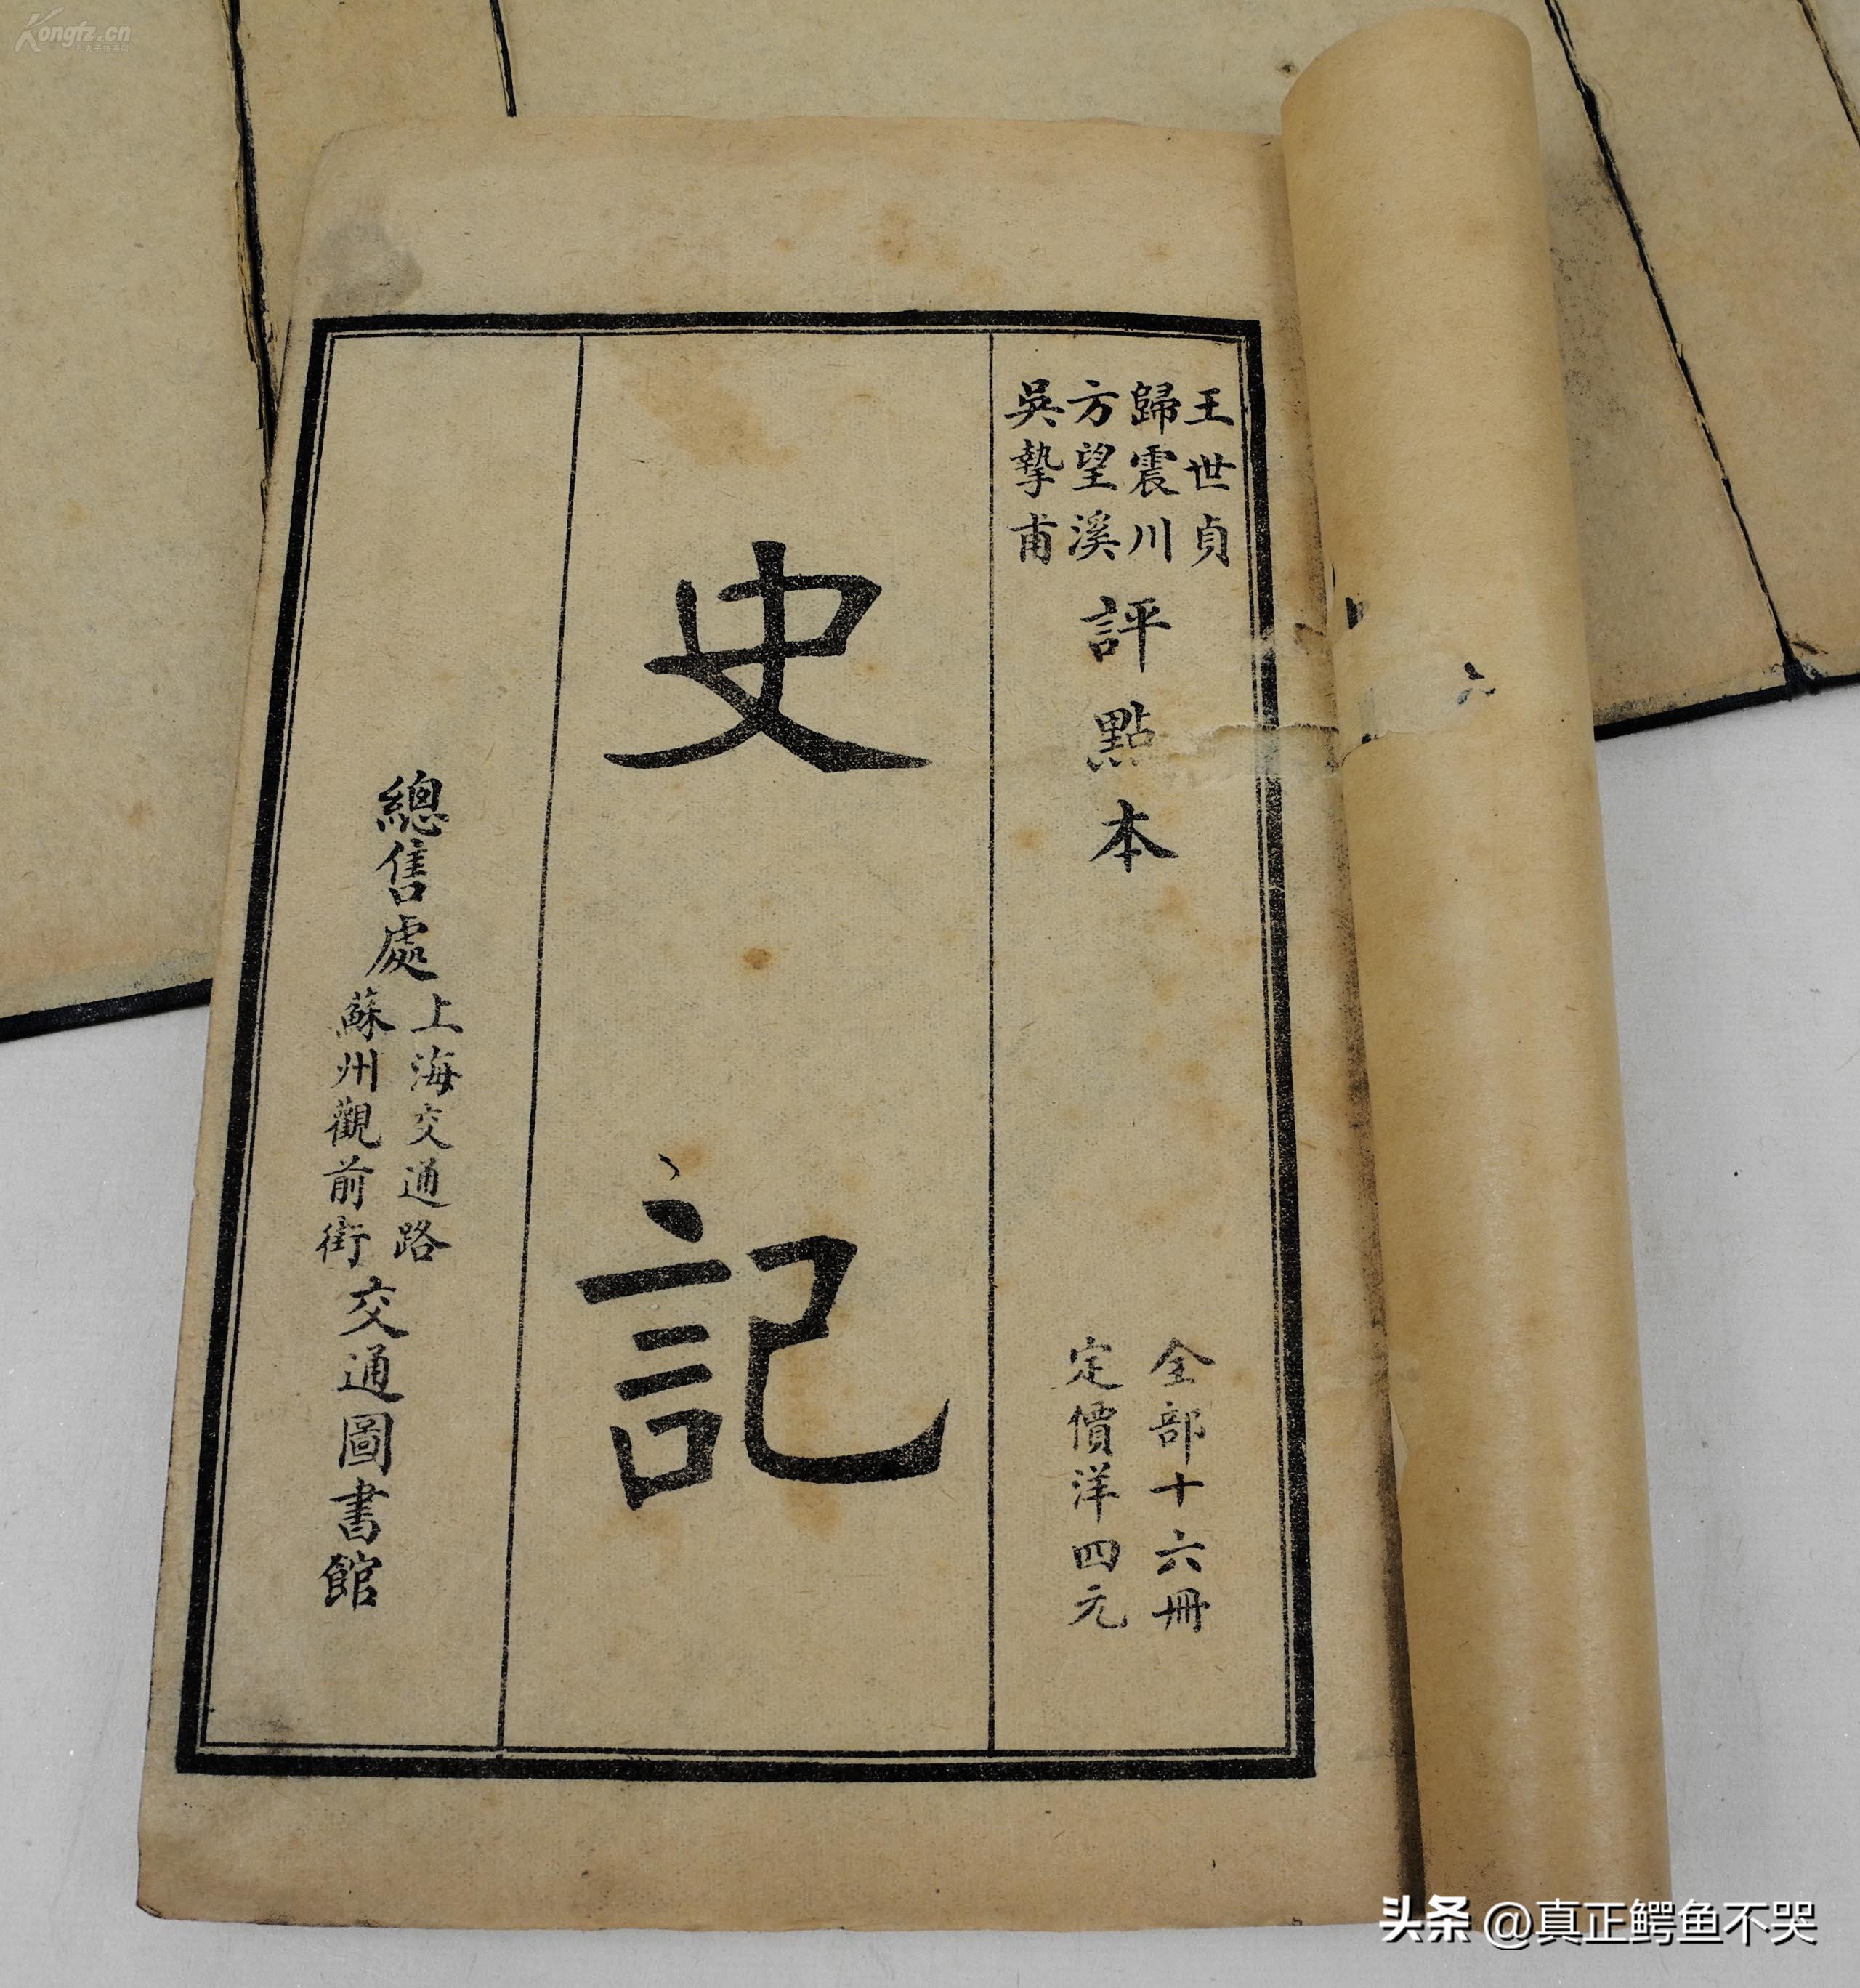 王世貞
歸震川
方望溪
吳摯甫
評點本
全部十六冊
定價洋四元
史記
總售處
上海交通路
蘇州觀前街
交通圖書館
Kongfz.cn
头条 @真正鳄鱼不哭